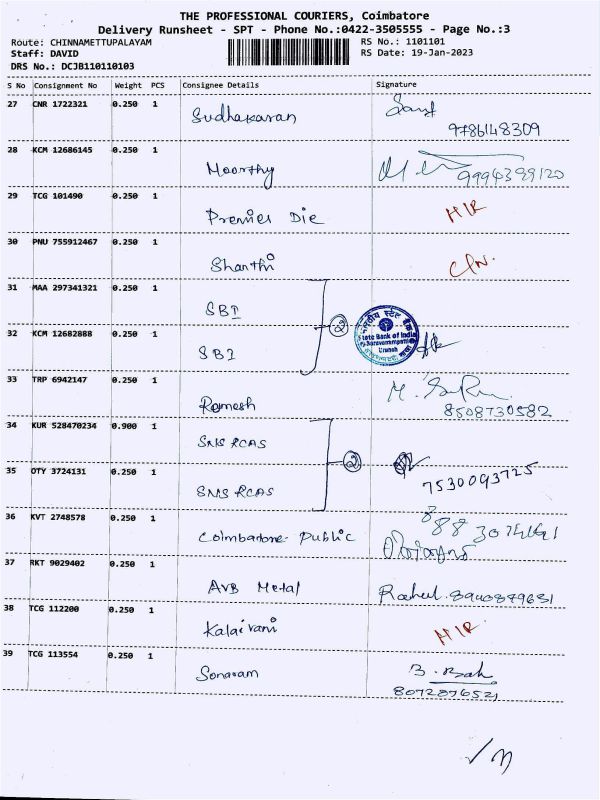 THE PROFESSIONAL COURIERS, Coimbatore
Delivery Runsheet - SPT - Phone No.:0422-3505555 - Page No.:3
Route: CHINNAMETTUPALAYAM RS No.: 1101101
Staff: DAVID RS Date: 19-Jan-2023
DRS No.: DCJB110110103
S No Consignment No Weight PCS Consignee Details Signature
27 CNR 1722321 0.250 1 Sudhakaran
9786148309
28 KCM 12686145 0.250 1 Moorthy 9994399120
29 TCG 101490 0.250 1 Premier Die
30 PNU 755912467 0.250 1 Shanthi
31 MAA 297341321 0.250 1 SBI
2
State Bank of India
Branch
32 KCM 12682888 0.250 1 SBI
33 TRP 6942147 0.250 1 Ramesh
8508730582
34 KUR 528470234 0.900 1 SNS RCAS
2
35 OTY 3724131 0.250 1 SNS RCAS 7530093725
36 KVT 2748578 0.250 1 Coimbatore Public
37 RKT 9029402 0.250 1 AVB Metal Rahul. 8940879631
38 TCG 112200 0.250 1 Kalaivani
39 TCG 113554 0.250 1 Sonaram
8072876521